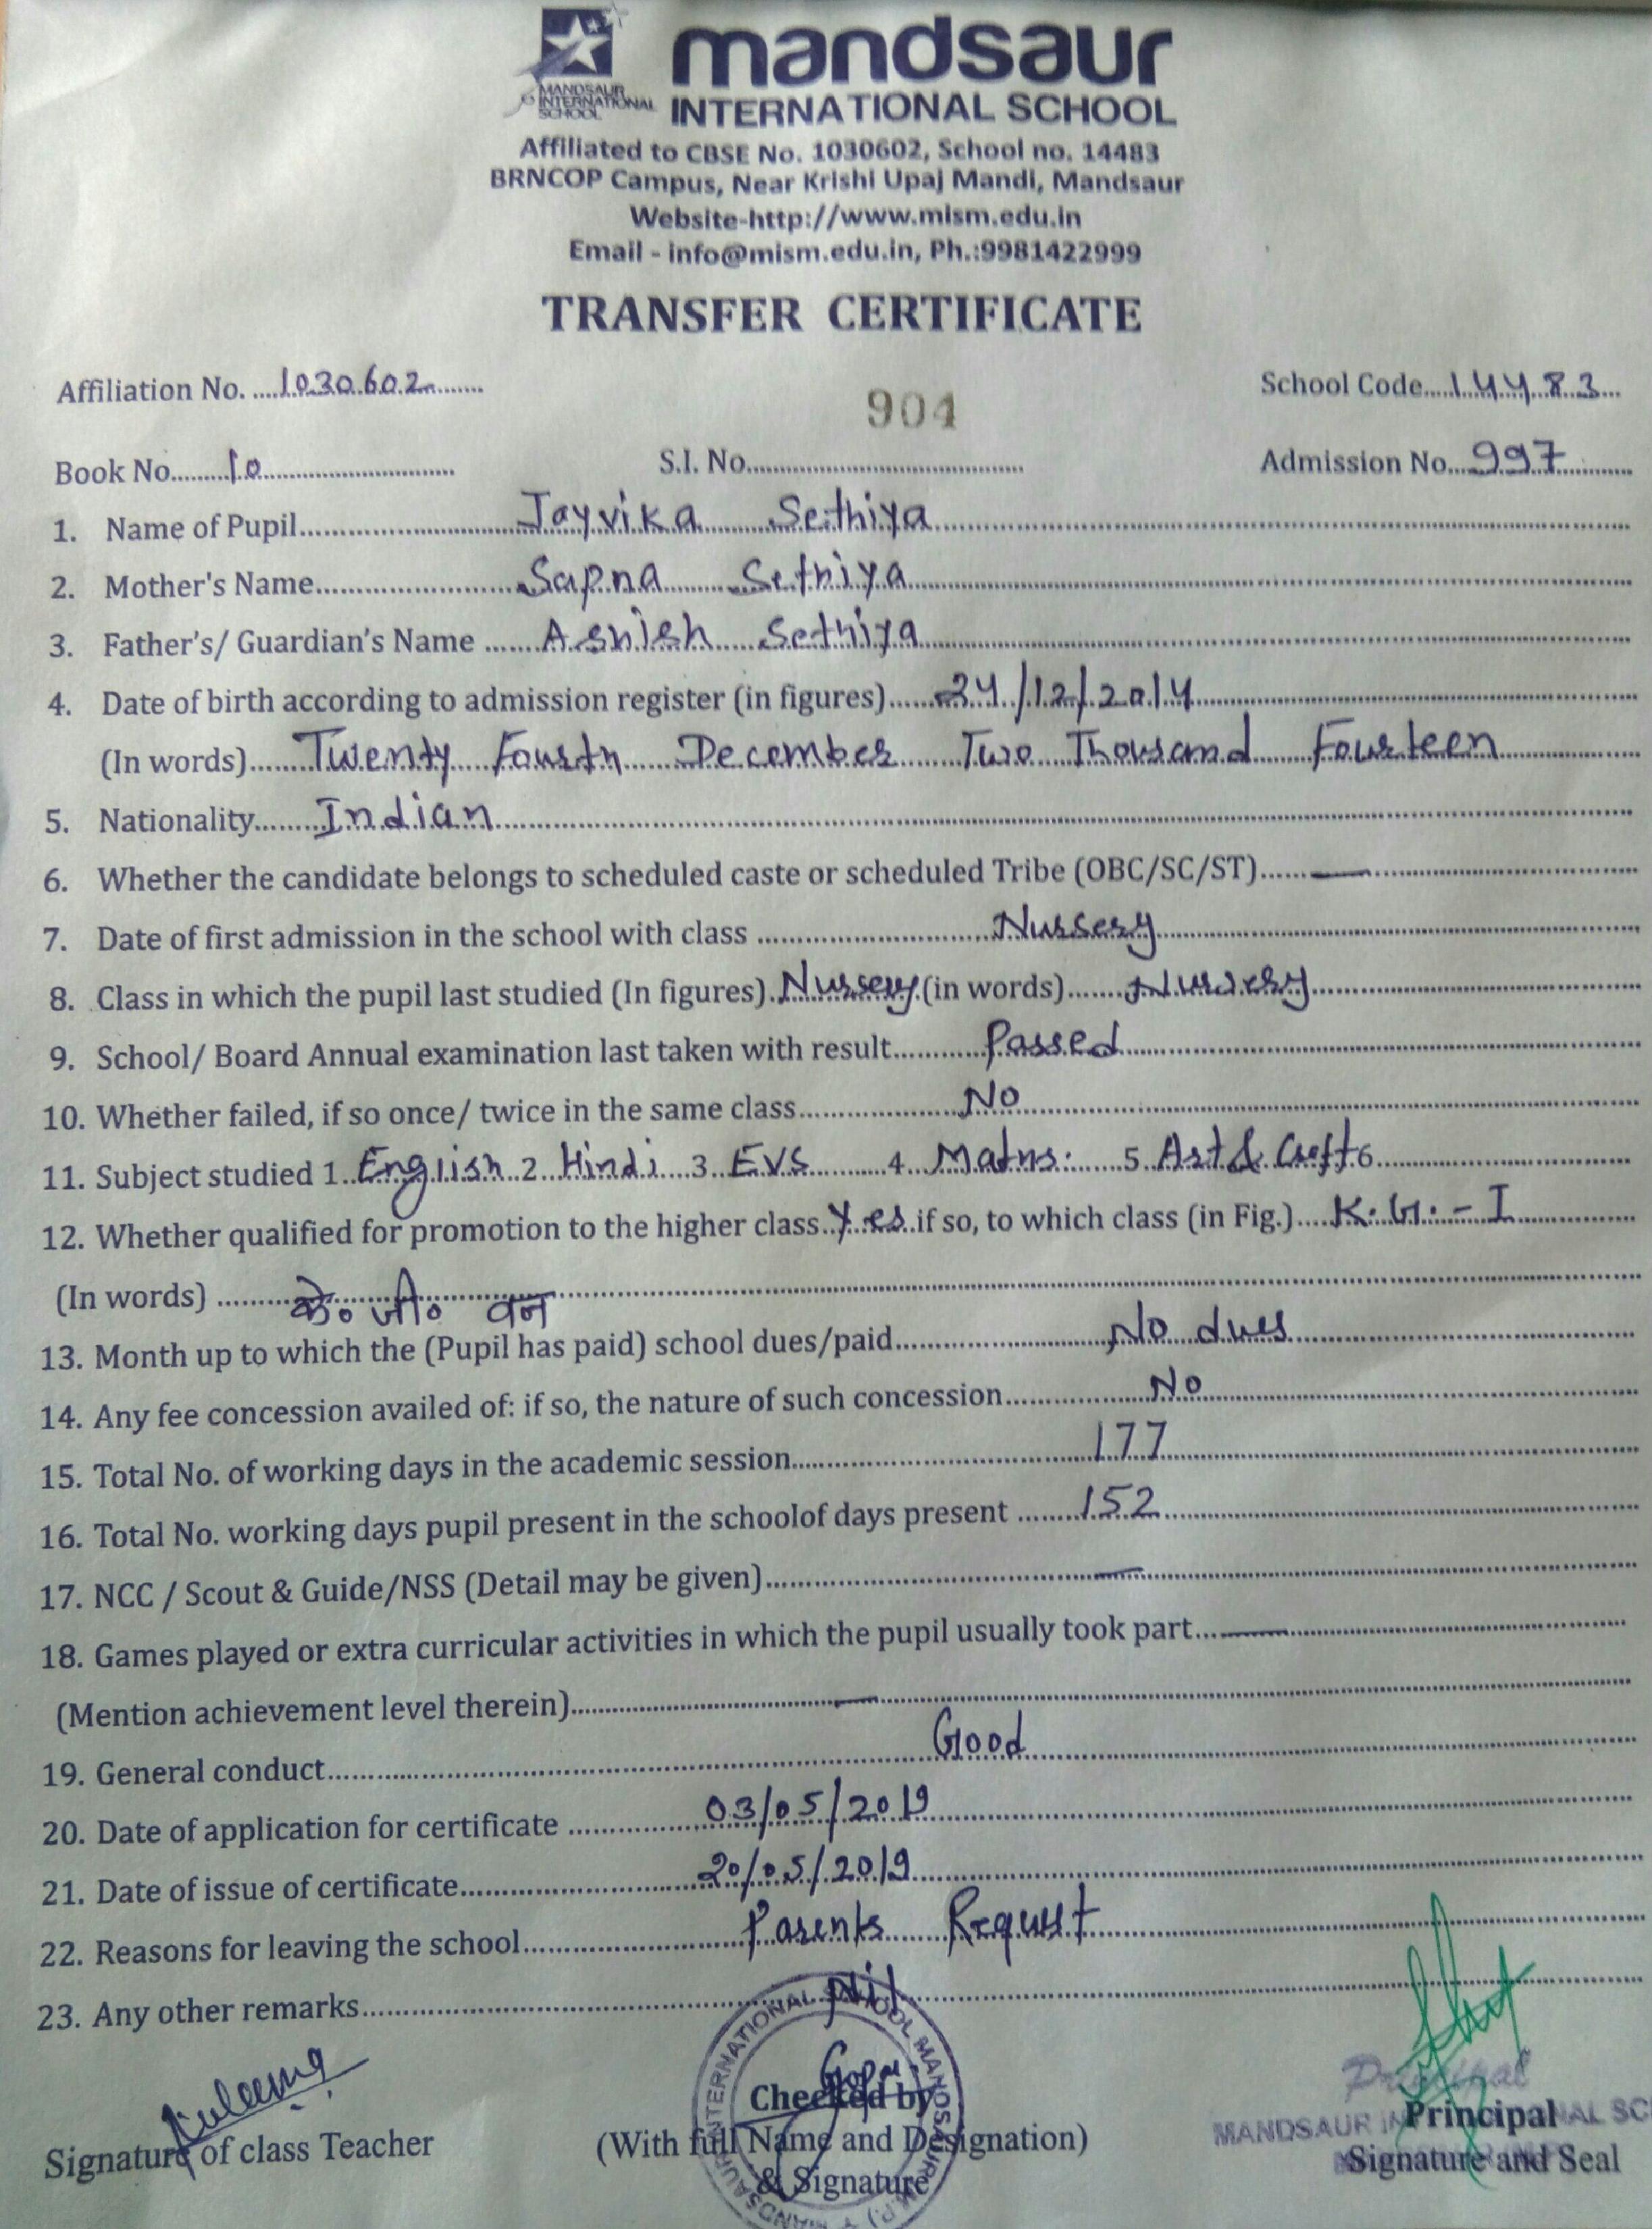 MANDSAUR
INTERNATIONAL
SCHOOL
mandsaur
INTERNATIONAL SCHOOL
Affiliated to CBSE No. 1030602, School no. 14483
BRNCOP Campus, Near Krishi Upaj Mandi, Mandsaur
Website-http://www.mism.edu.in
Email - info@mism.edu.in, Ph.:9981422999
TRANSFER CERTIFICATE
Affiliation No. 1030602 904 School Code 14483
Book No. 10 S.I. No. Admission No. 997
1. Name of Pupil Jayvika Sethiya
2. Mother's Name Sapna Sethiya
3. Father's/ Guardian's Name Ashish Sethiya
4. Date of birth according to admission register (in figures) 24/12/2014
(In words) Twenty Fourth December Two Thousand Fourteen
5. Nationality Indian
6. Whether the candidate belongs to scheduled caste or scheduled Tribe (OBC/SC/ST) —
7. Date of first admission in the school with class Nursery
8. Class in which the pupil last studied (In figures) Nursery (in words) Nursery
9. School/ Board Annual examination last taken with result Passed
10. Whether failed, if so once/ twice in the same class No
11. Subject studied 1. English 2. Hindi 3. EVS 4. Maths. 5. Art & Craft 6
12. Whether qualified for promotion to the higher class Yes if so, to which class (in Fig.) K.G. - I
(In words) के० जी० वन
13. Month up to which the (Pupil has paid) school dues/paid No dues
14. Any fee concession availed of: if so, the nature of such concession No
15. Total No. of working days in the academic session 177
16. Total No. working days pupil present in the schoolof days present 152
17. NCC / Scout & Guide/NSS (Detail may be given) —
18. Games played or extra curricular activities in which the pupil usually took part —
(Mention achievement level therein) —
19. General conduct Good
20. Date of application for certificate 03/05/2019
21. Date of issue of certificate 20/05/2019
22. Reasons for leaving the school Parents Request
23. Any other remarks Nil
Signature of class Teacher
Checked by
(With full Name and Designation)
& Signature
Principal
MANDSAUR INTERNATIONAL SC
Principal
Signature and Seal